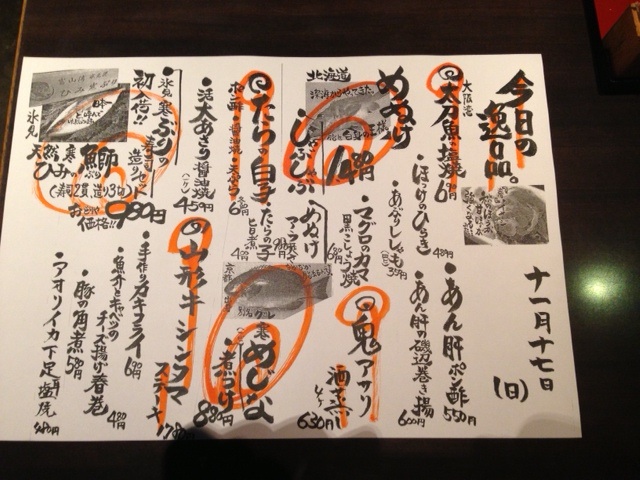 今日の逸品。
十一月十七日(日)
大阪湾
太刀魚の塩焼 690円
ほっけのひらき 480円
あぶりししゃも 350円
あん肝ポン酢 550円
あん肝の磯辺巻き揚 600円
北海道
めぬけ
しゃぶしゃぶ
マグロのカマ
黒こしょう焼 680円
鬼アサリ
酒蒸し 630円
めぬけ
アラ煮
たらの白子
ポン酢・醤油焼・天ぷら
たらの子
旨煮 480円
寒めじな
煮つけ 880円
活大あさり醤油焼 450円
山形牛シンタマ
ステーキ
氷見寒ぶりの
初入荷!!
寿司と
造りセット
氷見
天然寒鰤
ひみのかんぶり
(寿司2貫、造り3切)
980円
おどろき
価格!!
手作りカキフライ 690円
魚介とキャベツの
チーズ揚げ春巻 480円
豚の角煮 580円
アオリイカ下足塩焼 480円